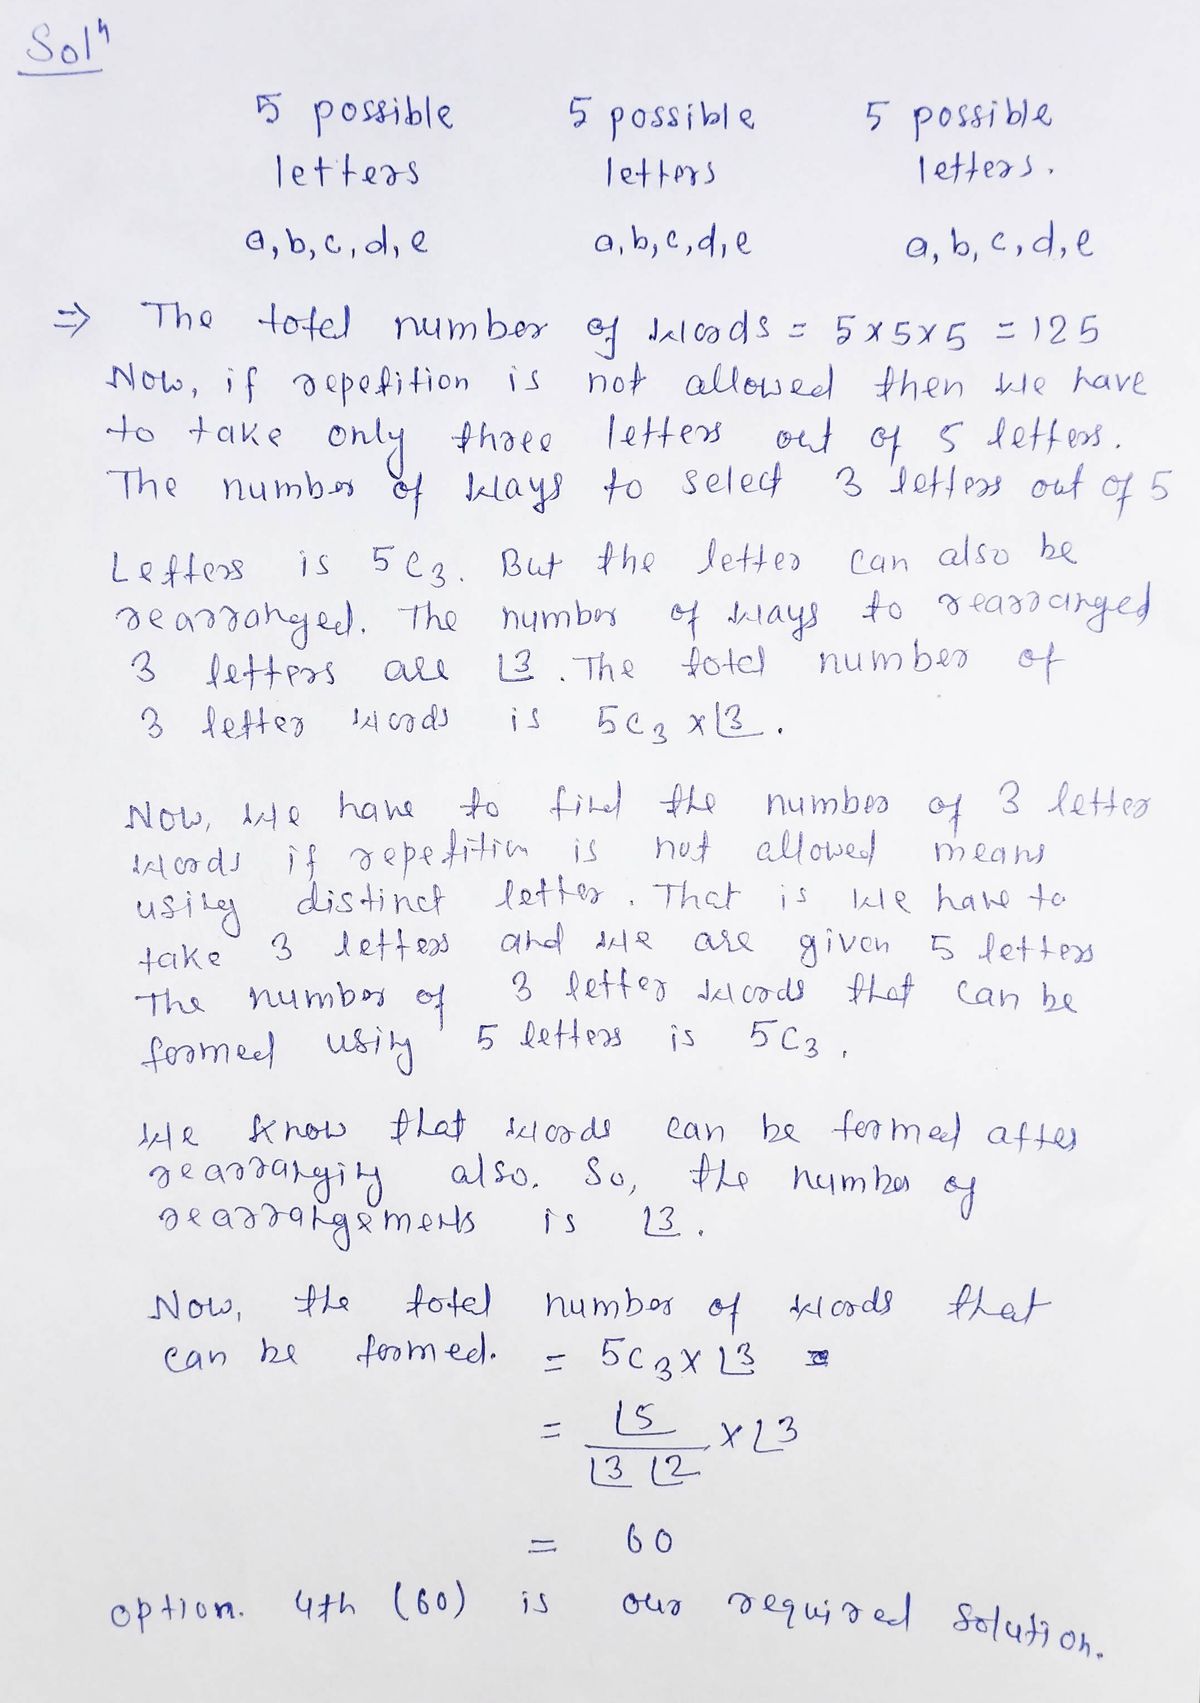 Solⁿ
5 possible 5 possible 5 possible
letters letters letters.
a, b, c, d, e a, b, c, d, e a, b, c, d, e
⇒ The total number of words = 5 x 5 x 5 = 125
Now, if repetition is not allowed then we have
to take only three letters out of 5 letters.
The number of ways to select 3 letters out of 5
Letters is 5C₃. But the letter can also be
rearranged. The number of ways to rearranged
3 letters are ∟3. The total number of
3 letter words is 5C₃ x ∟3.
Now, we have to find the number of 3 letter
words if repetition is not allowed means
using distinct letter. That is we have to
take 3 letters and we are given 5 letters
The number of 3 letter words that can be
formed using 5 letters is 5C₃.
We know that words can be formed after
rearranging also. So, the number of
rearrangements is ∟3.
Now, the total number of words that
can be formed. = 5C₃ x ∟3
= ∟5 / ∟3 ∟2 x ∟3
= 60
option. 4th (60) is our required solution.